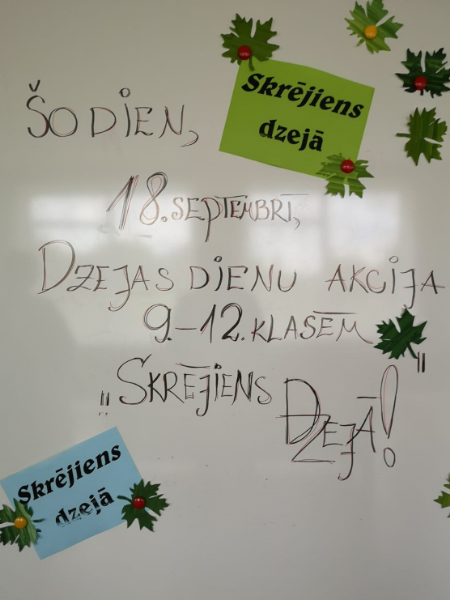 Skrējiens
dzejā
ŠODIEN,
18. SEPTEMBRĪ,
DZEJAS DIENU AKCIJA
9.-12. KLASĒM
„SKRĒJIENS DZEJĀ!"
Skrējiens
dzejā